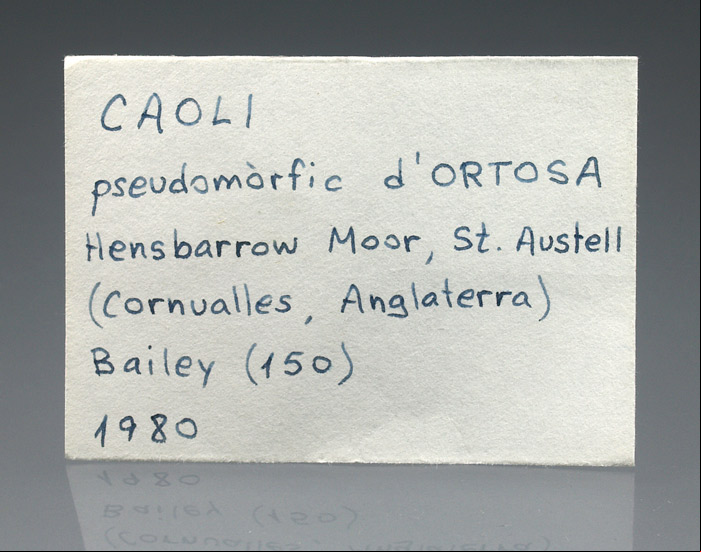 CAOLI
pseudomòrfic d'ORTOSA
Hensbarrow Moor, St. Austell
(Cornualles, Anglaterra)
Bailey (150)
1980